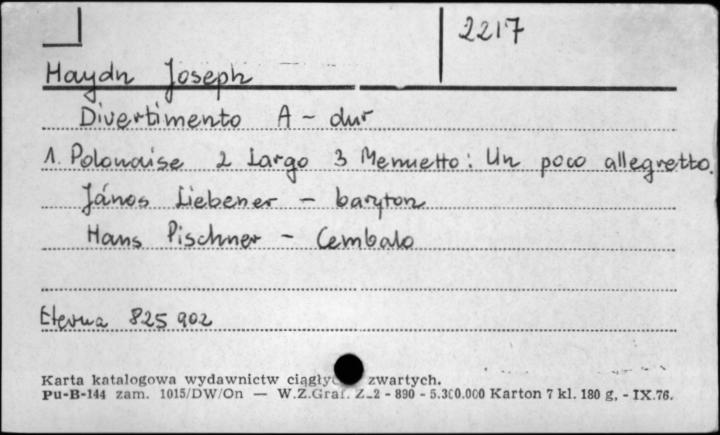 2217
Haydn Joseph
Divertimento A - dur
1. Polonaise 2 Largo 3 Menuetto: Un poco allegretto.
János Liebener - baryton
Hans Pischner - Cembalo
Eterna 825 902
Karta katalogowa wydawnictw zwartych.
Pu-B-144 zam. 1015/DW/On — W.Z.Graf. Z-2 - 890 - 5.300.000 Karton 7 kl. 180 g. - IX.76.